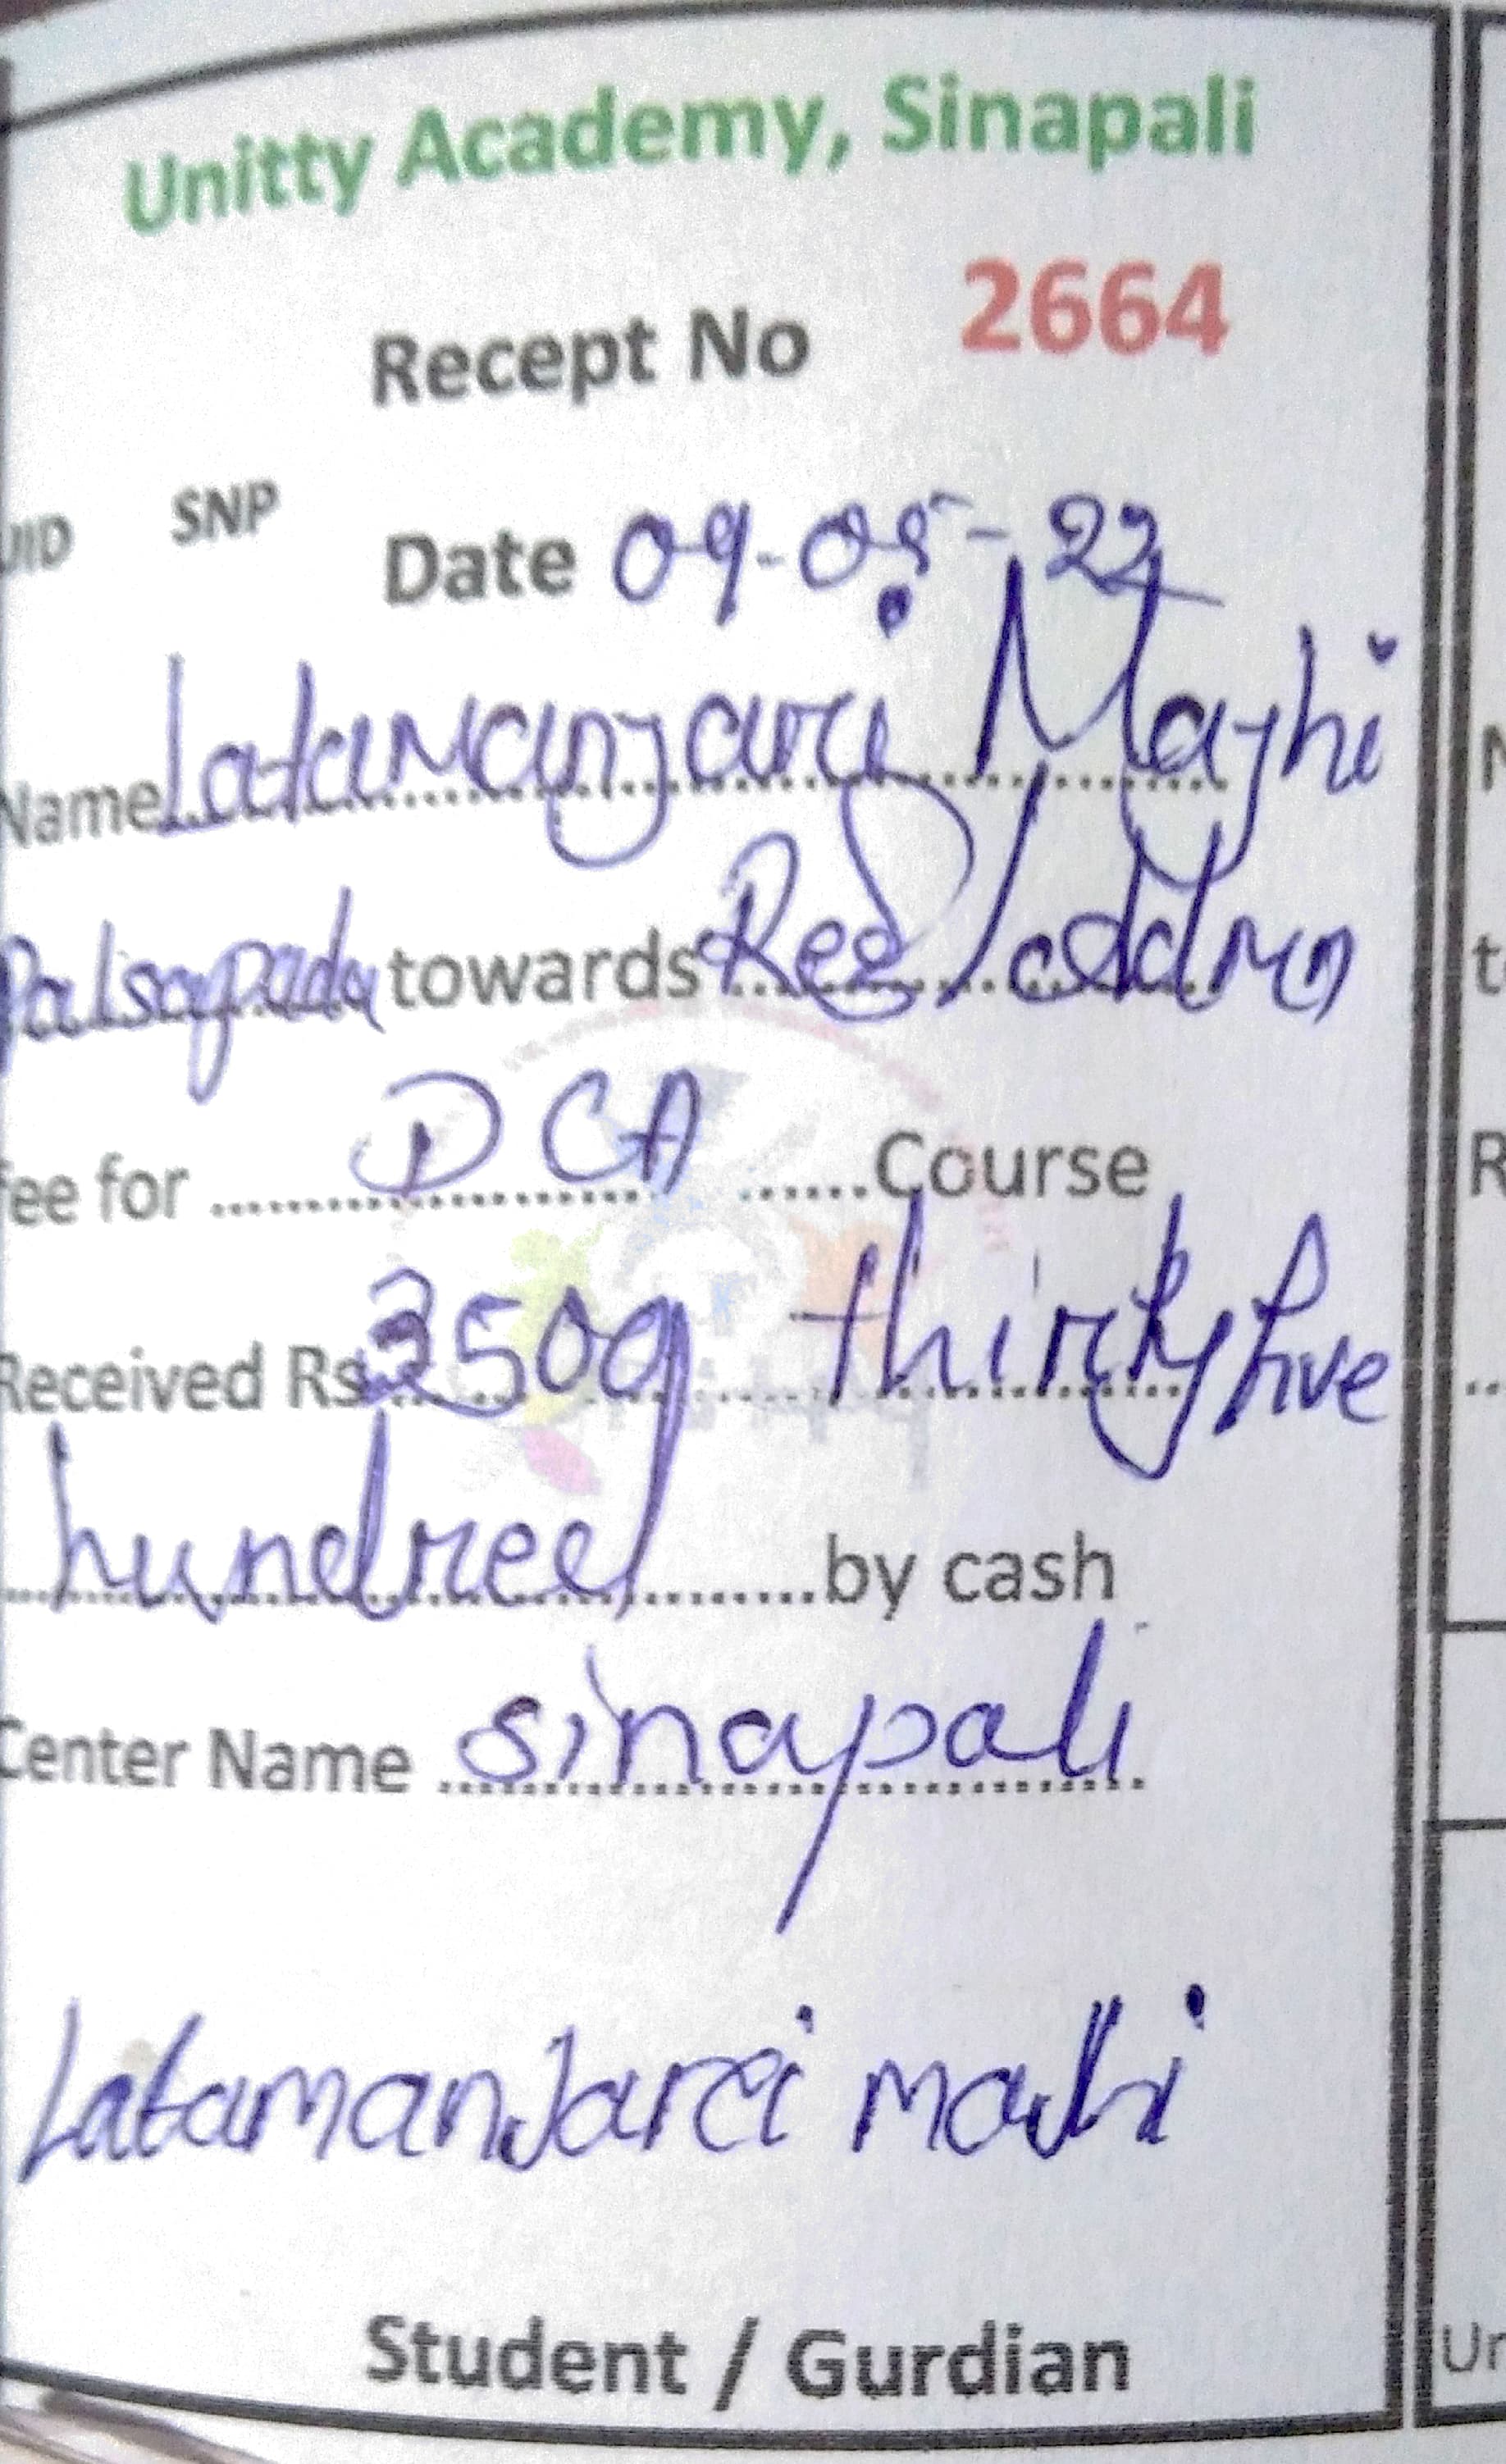 Unitty Academy, Sinapali
Recept No 2664
UID SNP Date 09-05-22
Name Latamanjari Majhi
Palsapada towards Reg/addmn
fee for .......... DCA ......Course
Received Rs. 3500 thirty five
hundred ..........by cash
Center Name sinapali
Latamanjari majhi
Student / Gurdian